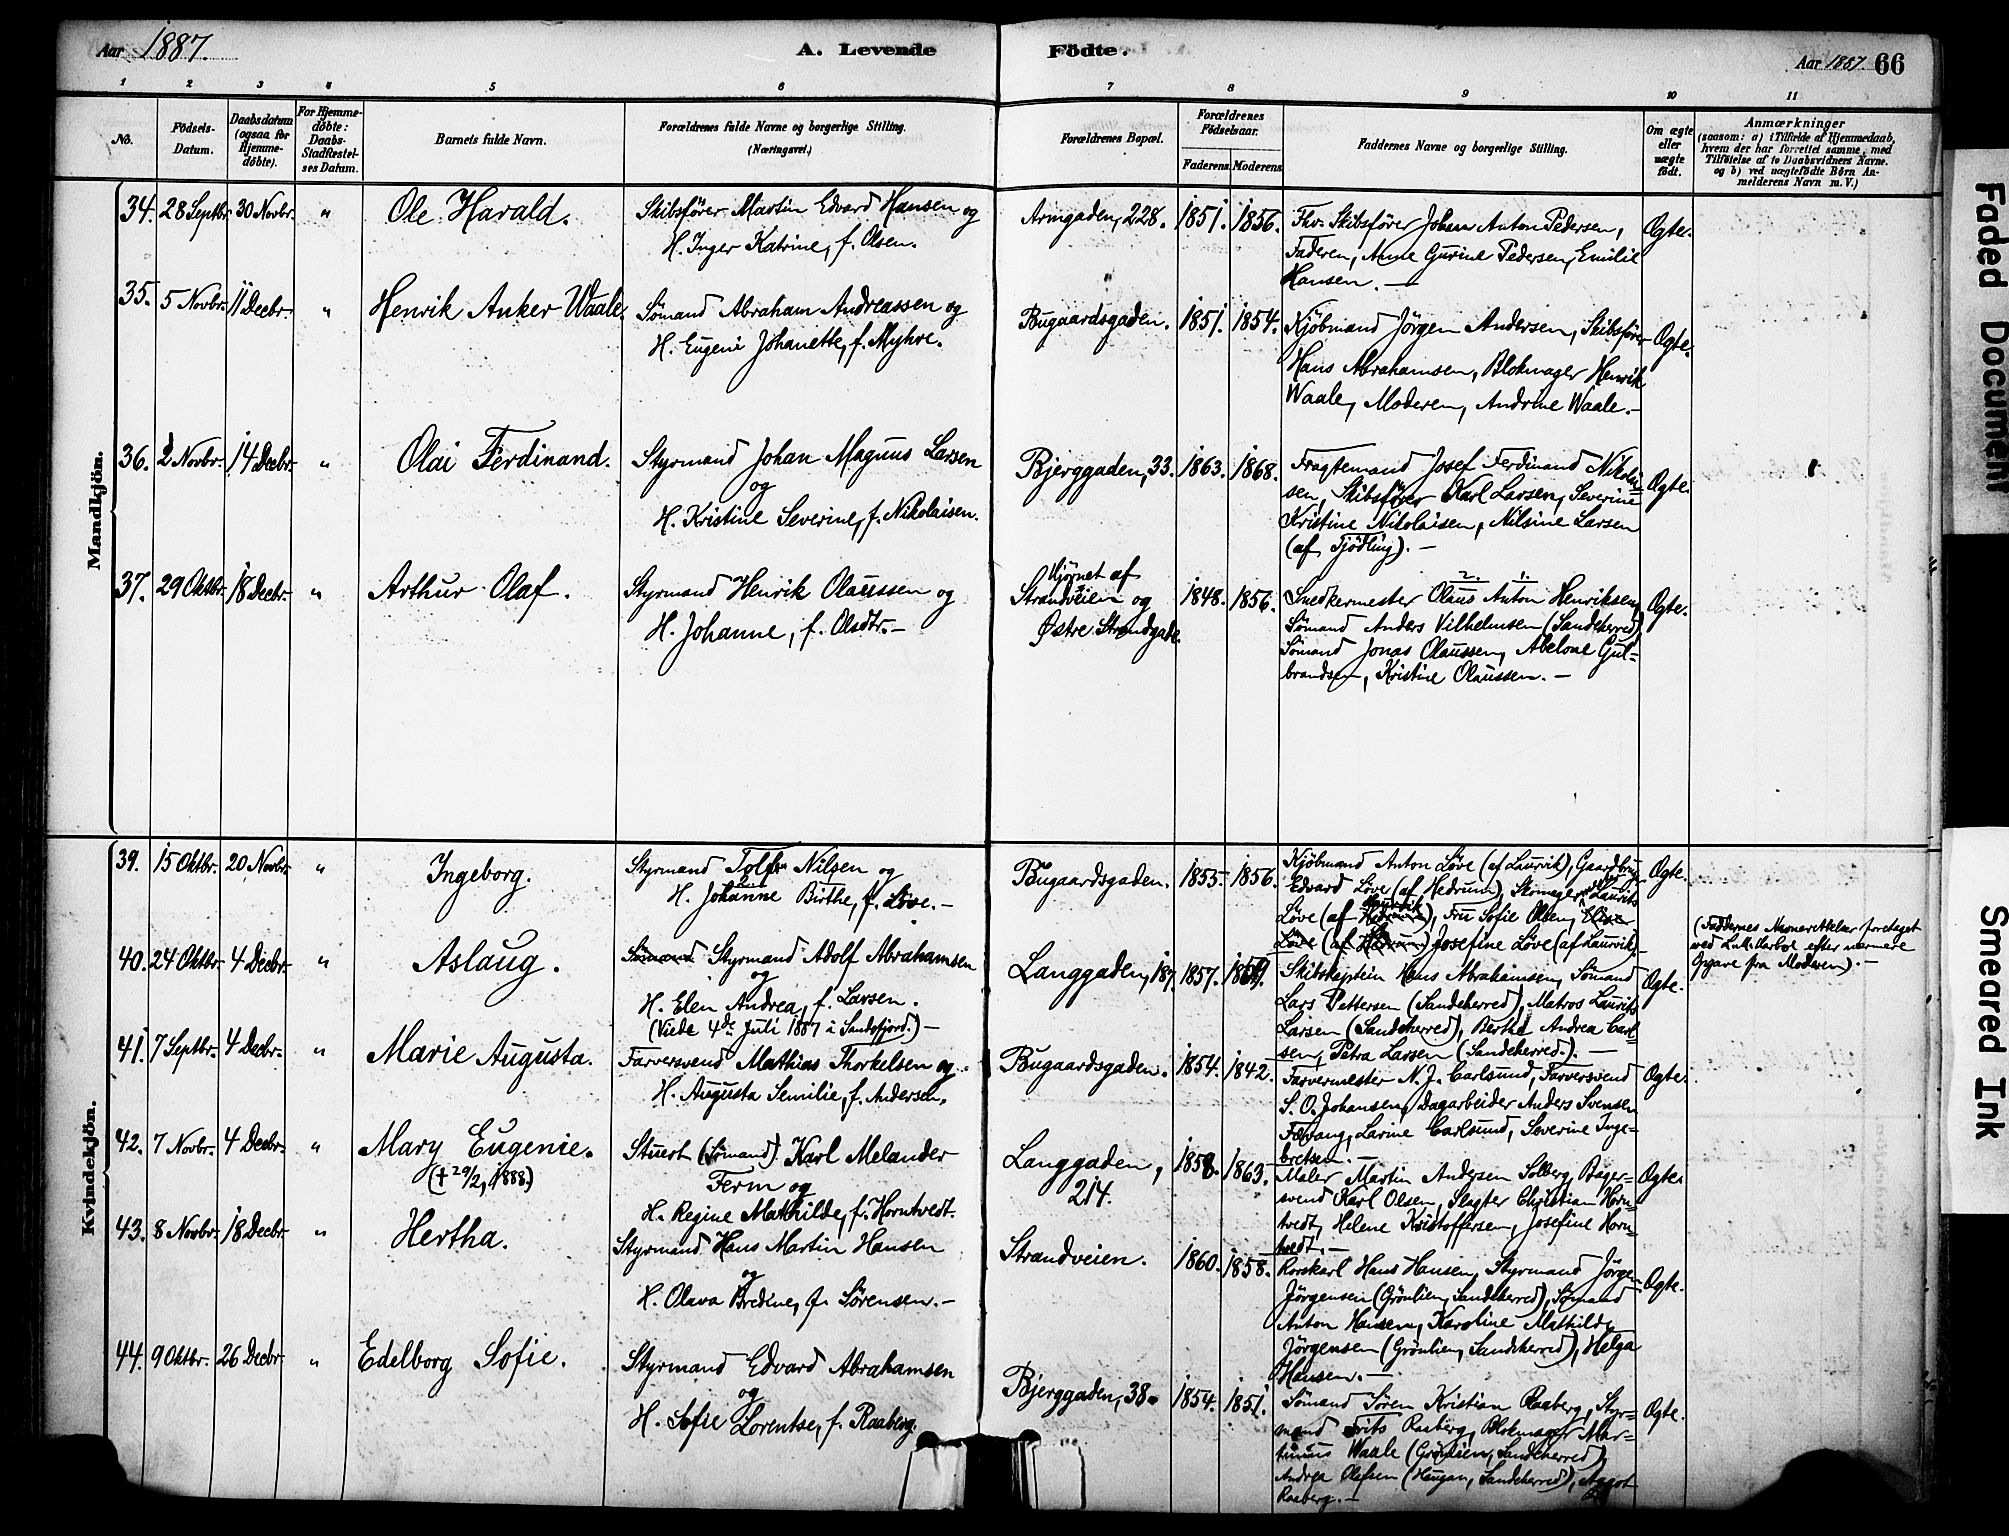 Aar 1887.
A. Levende
Födte.
Aar 1887. 66
1 2 3 4 5 6 7 8 9 10 11
No.
Födsels-
Datum.
Daabsdatum
(ogsaa for
Hjemme-
döbte).
For Hjemme-
döbte:
Daabs-
Stadfæstel-
ses Datum.
Barnets fulde Navn.
Forældrenes fulde Navne og borgerlige Stilling.
(Næringsvei.)
Forældrenes Bopæl.
Forældrenes
Födselsaar.
Faderens Moderens
Faddernes Navne og borgerlige Stilling.
Om ægte
eller
uægte
födt.
Anmærkninger
(saasom: a) i Tilfælde af Hjemmedaab,
hvem der har forrettet samme, med
Tilföielse af to Daabsvidners Navne.
og b) ved uægtefödte Börn An-
melderens Navn m. V.)
Mandkjön.
34. 28 Septbr. 30 Novbr. "
Ole Harald.
Skibsfører Martin Edvard Hansen og
H. Inger Katrine, f. Olsen.
Armgaden, 228. 1851. 1856.
Fhv. Skibsfører Johan Anton Pedersen,
Faderen, Anne Gurine Pedersen, Emilie
Hansen. —
Ægte.
35. 5 Novbr. 11 Decbr. "
Henrik Anker Waale.
Sømand Abraham Andreassen og
H. Eugeni Johanette, f. Myhre.
Bugaardsgaden. 1851. 1854.
Kjøbmand Jørgen Andersen, Skibsfører
Hans Abrahamsen, Blokmager Henrik
Waale, Moderen, Andrine Waale. —
Ægte.
36. 2 Novbr. 14 Decbr. "
Olai Ferdinand.
Styrmand Johan Magnus Larsen
og
H. Kristine Severine, f. Nikolaisen.
Bjerggaden, 33. 1863. 1868.
Fragtemand Josef Ferdinand Nikolai-
sen, Skibsfører Karl Larsen, Severine
Kristine Nikolaisen, Nilsine Larsen
(af Tjödling). —
Ægte.
37. 29 Oktbr. 18 Decbr. "
Arthur Olaf.
Styrmand Henrik Olaussen og
H. Johanne, f. Olsdtr. —
Hjørnet af
Strandveien og
Østre Strandgade.
1848. 1856.
2. 1.
Snedkermester Olaus Anton Henriksen,
Sømand Anders Vilhelmsen (Sandeherred)
Sømand Jonas Olaussen, Abelone Gul-
brandsen, Kristine Olaussen. —
Ægte.
Kvindekjön.
39. 15 Oktbr. 20 Novbr. "
Ingeborg.
Styrmand Tolf Nilsen og
H. Johanne Birthe, f. Løve. —
Bugaardsgaden. 1855. 1856.
Kjøbmand Anton Løve (af Laurvik), Gaardbrug.
Edvard Løve (af Hedrum), Skomager Laurits
Løve (af Hedrum Laurvik), Fru Sofie Olsen, Elise
Løve (af Hedrum) Josefine Løve (af Laurvik).
Ægte.
(Faddernes Navnerettelser foretaget
ved efter nærmere
Opgave fra Moderen). —
40. 24 Oktbr. 4 Decbr. "
Aslaug.
Sømand Styrmand Adolf Abrahamsen
og
H. Elen Andrea, f. Larsen.
(Viede 4de Juli 1887 i Sandefjord.) —
Langgaden, 187. 1857.
Skibskaptein Hans Abrahamsen, Sømand
Lars Pettersen (Sandeherred), Matros Laurits
Larsen (Sandeherred), Berthe Andrea Carl-
sen, Petra Larsen (Sandeherred.). —
Ægte.
41. 7 Septbr. 4 Decbr. "
Marie Augusta.
Farversvend Mathias Thorkelsen og
H. Augusta Semilie, f. Andersen.
Bugaardsgaden. 1854. 1842.
Farvermester N. J. Carlsund, Farversvend
S. O. Johansen, Dagarbeider Anders Svensen
Fevang, Larine Carlsund, Severine Inge-
bretsen. —
Ægte.
42. 7 Novbr. 4 Decbr. "
Mary Eugenie.
(+ 29/2, 1888.)
Stuert (Sømand) Karl Melander
Ferm og
H. Regine Mathilde, f. Horntvedt.
Langgaden,
214.
1858. 1863.
Maler Martin Andersen Solberg, Bager-
svend Karl Olsen, Slagter Christian Horn-
tvedt, Helene Kristoffersen, Josefine Horn-
tvedt. —
Ægte.
43. 8 Novbr. 18 Decbr. "
Hertha.
Styrmand Hans Martin Hansen
og
H. Olava Bredine, f. Sørensen. —
Strandveien. 1860. 1858.
Rorskarl Hans Hansen, Styrmand Jørgen
Jørgensen (Grönlien, Sandeherred), Sømand
Anton Hansen, Karoline Mathilde
Jørgensen (Grönlien, Sandeherred), Helga
Hansen. —
Ægte.
44. 9 Oktbr. 26 Decbr. "
Edelborg Sofie.
Styrmand Edvard Abrahamsen
og
H. Sofie Lorentse, f. Raaberg.
Bjerggaden, 38. 1854. 1851.
Sømand Søren Kristian Raaberg, Styr-
mand Frits Raaberg, Blokmager Mar-
tinius Waale (Grönlien, Sandeherred)
Andrea Olafsen (Haugan, Sandeherred), Aagot
Raaberg. —
Ægte.
Faded Document
Smeared Ink